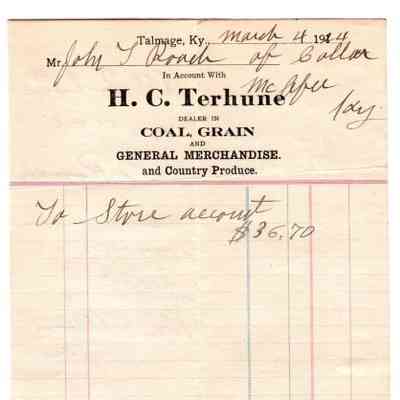 Talmage, Ky., March 4 1914
Mr. John T Roach of Collar
In Account With
McAfee
H. C. Terhune
Ky.
DEALER IN
COAL, GRAIN
AND
GENERAL MERCHANDISE.
and Country Produce.
To Store account
$36.70